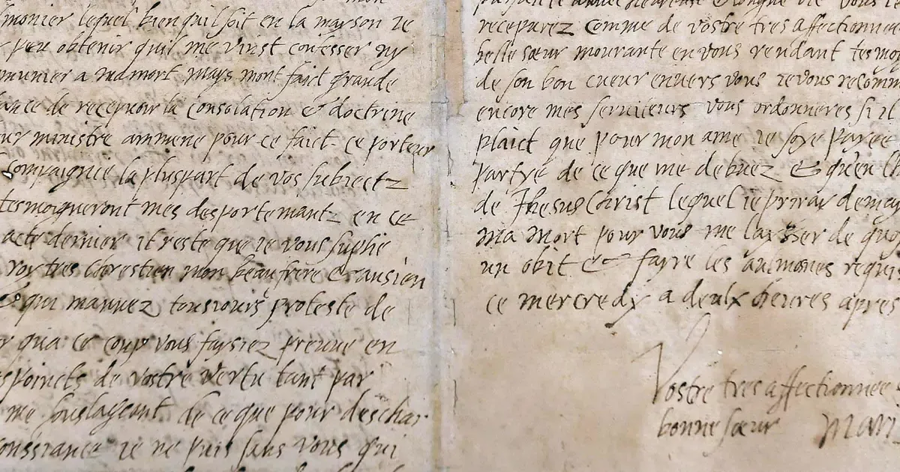 monier lequel bien quil soit en la mayson ie
peu obtenir quil me vinst confesser ny
munier a ma mort mays mont fait grande
tance de recepuoir la Consolation & doctrine
ministre ammene pour ce faict ce porteur
Compaignie la pluspart de vos subiectz
tesmoigneront mes desportemantz en ce
acte dernier il reste que ie vous suplie
roy tres chrestien mon beau frere & ansien
qui mauuez tousiours proteste de
qua ce coup vous faysiez preuue en
poincts de vostre vertu tant par
me soulageant de ce que pour deschar
ie ne puis sans vous qui
receparez comme de vostre tres affectionnee
belle sœur mourante en vous rendant tesmo
de son bon cueur enuers vous ie vous recomm
encore mes seruiteurs vous ordonneres si il
plaict que pour mon ame ie soye payee
partye de ce que me debuez & quen lh
de Jhesus Christ lequel ie priray demay
ma mort pour vous me laysser de quoy
un obit & fayre les aulmones requis
ce mercredy a deulx heures apres
Vostre tres affectionnee &
bonne sœur Mari